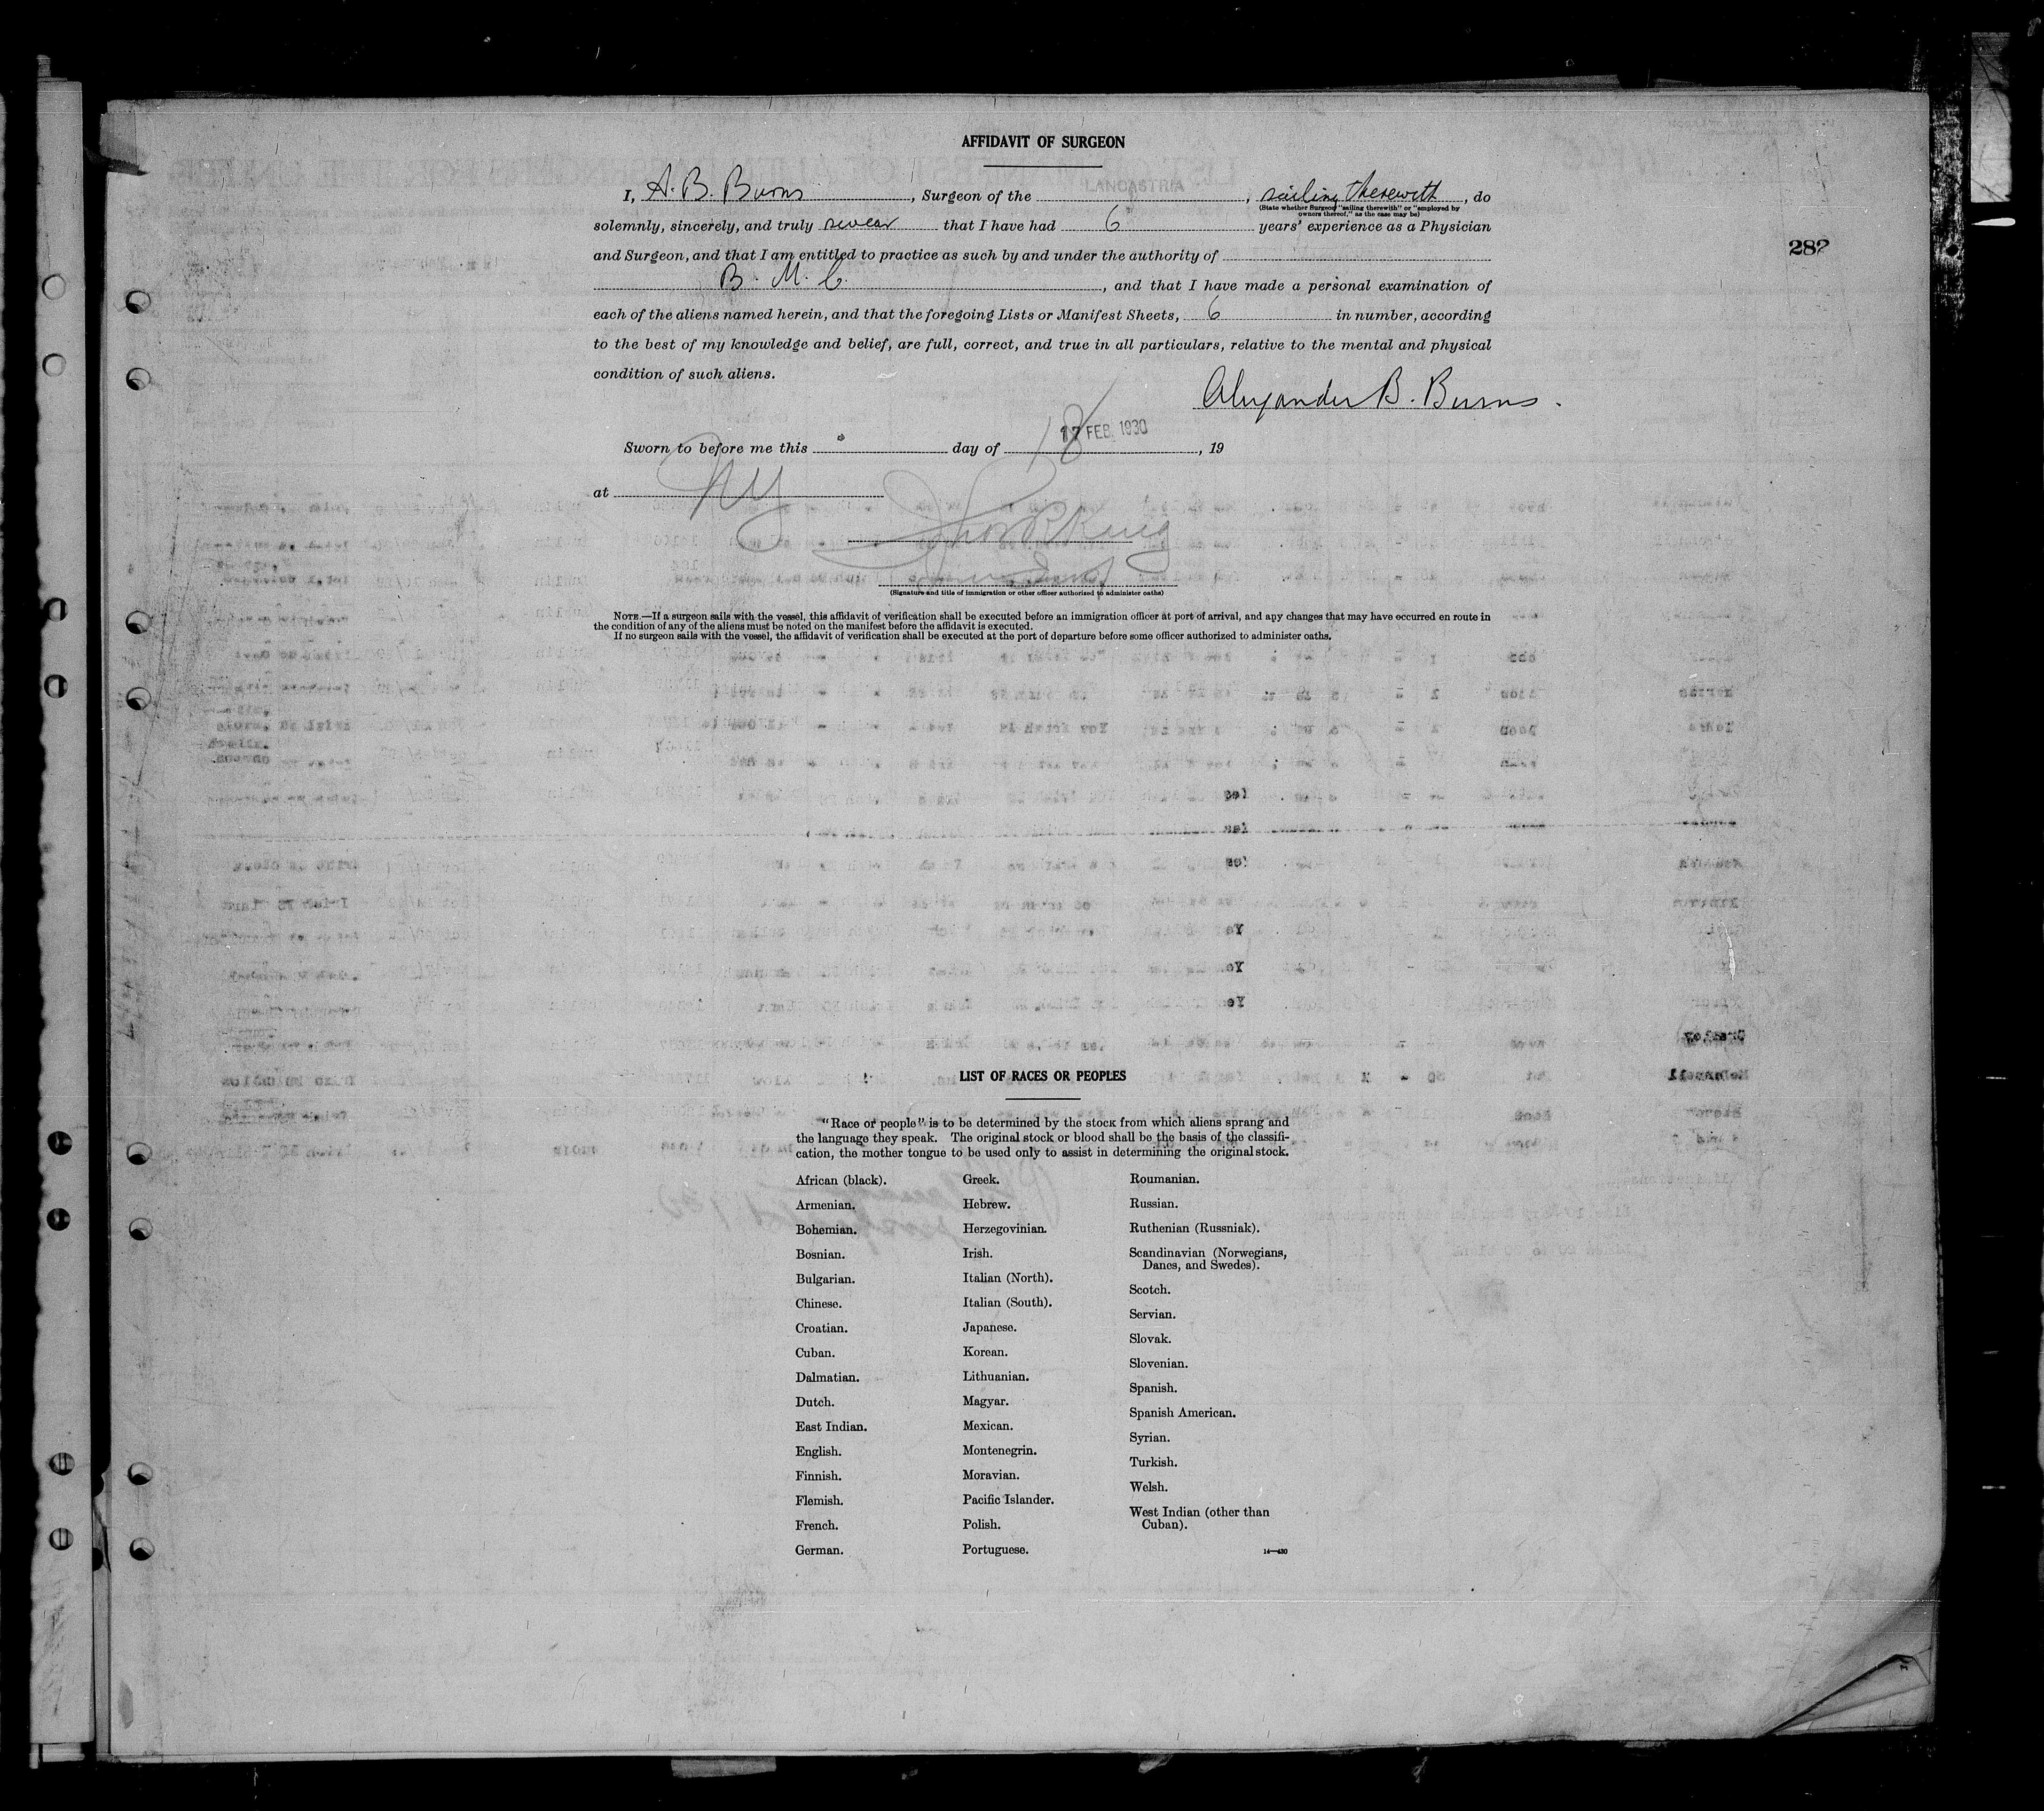 AFFIDAVIT OF SURGEON
I, A. B. Burns, Surgeon of the LANCASTRIA, sailing therewith, do
(State whether Surgeon "sailing therewith" or "employed by
owners thereof," as the case may be)
solemnly, sincerely, and truly swear that I have had 6 years' experience as a Physician
282
and Surgeon, and that I am entitled to practice as such by and under the authority of
B. M. C., and that I have made a personal examination of
each of the aliens named herein, and that the foregoing Lists or Manifest Sheets, 6 in number, according
to the best of my knowledge and belief, are full, correct, and true in all particulars, relative to the mental and physical
condition of such aliens.
Alexander B. Burns.
17 FEB 1930
18
Sworn to before me this day of , 19
at NY
(Signature and title of immigration or other officer authorized to administer oaths)
NOTE.—If a surgeon sails with the vessel, this affidavit of verification shall be executed before an immigration officer at port of arrival, and any changes that may have occurred en route in
the condition of any of the aliens must be noted on the manifest before the affidavit is executed.
If no surgeon sails with the vessel, the affidavit of verification shall be executed at the port of departure before some officer authorized to administer oaths.
LIST OF RACES OR PEOPLES
"Race or people" is to be determined by the stock from which aliens sprang and
the language they speak. The original stock or blood shall be the basis of the classifi-
cation, the mother tongue to be used only to assist in determining the original stock.
African (black).
Armenian.
Bohemian.
Bosnian.
Bulgarian.
Chinese.
Croatian.
Cuban.
Dalmatian.
Dutch.
East Indian.
English.
Finnish.
Flemish.
French.
German.
Greek.
Hebrew.
Herzegovinian.
Irish.
Italian (North).
Italian (South).
Japanese.
Korean.
Lithuanian.
Magyar.
Mexican.
Montenegrin.
Moravian.
Pacific Islander.
Polish.
Portuguese.
Roumanian.
Russian.
Ruthenian (Russniak).
Scandinavian (Norwegians,
Danes, and Swedes).
Scotch.
Servian.
Slovak.
Slovenian.
Spanish.
Spanish American.
Syrian.
Turkish.
Welsh.
West Indian (other than
Cuban).
14—430